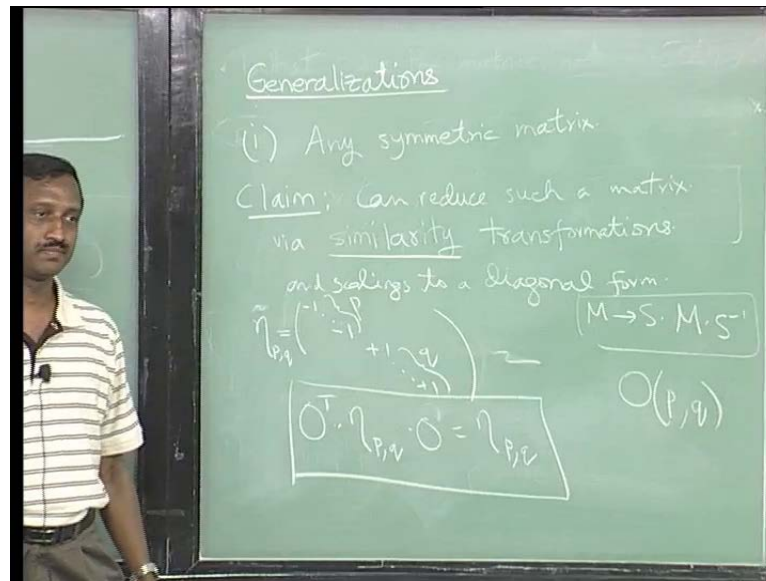 Generalizations
(i) Any symmetric matrix.
Claim: Can reduce such a matrix
via similarity transformations
and scalings to a diagonal form.
M → S · M · S⁻¹
η̃_{p,q} = ( -1 ⋱ -1 p +1 ⋱ +1 q )
O(p,q)
Oᵀ · η_{p,q} · O = η_{p,q}